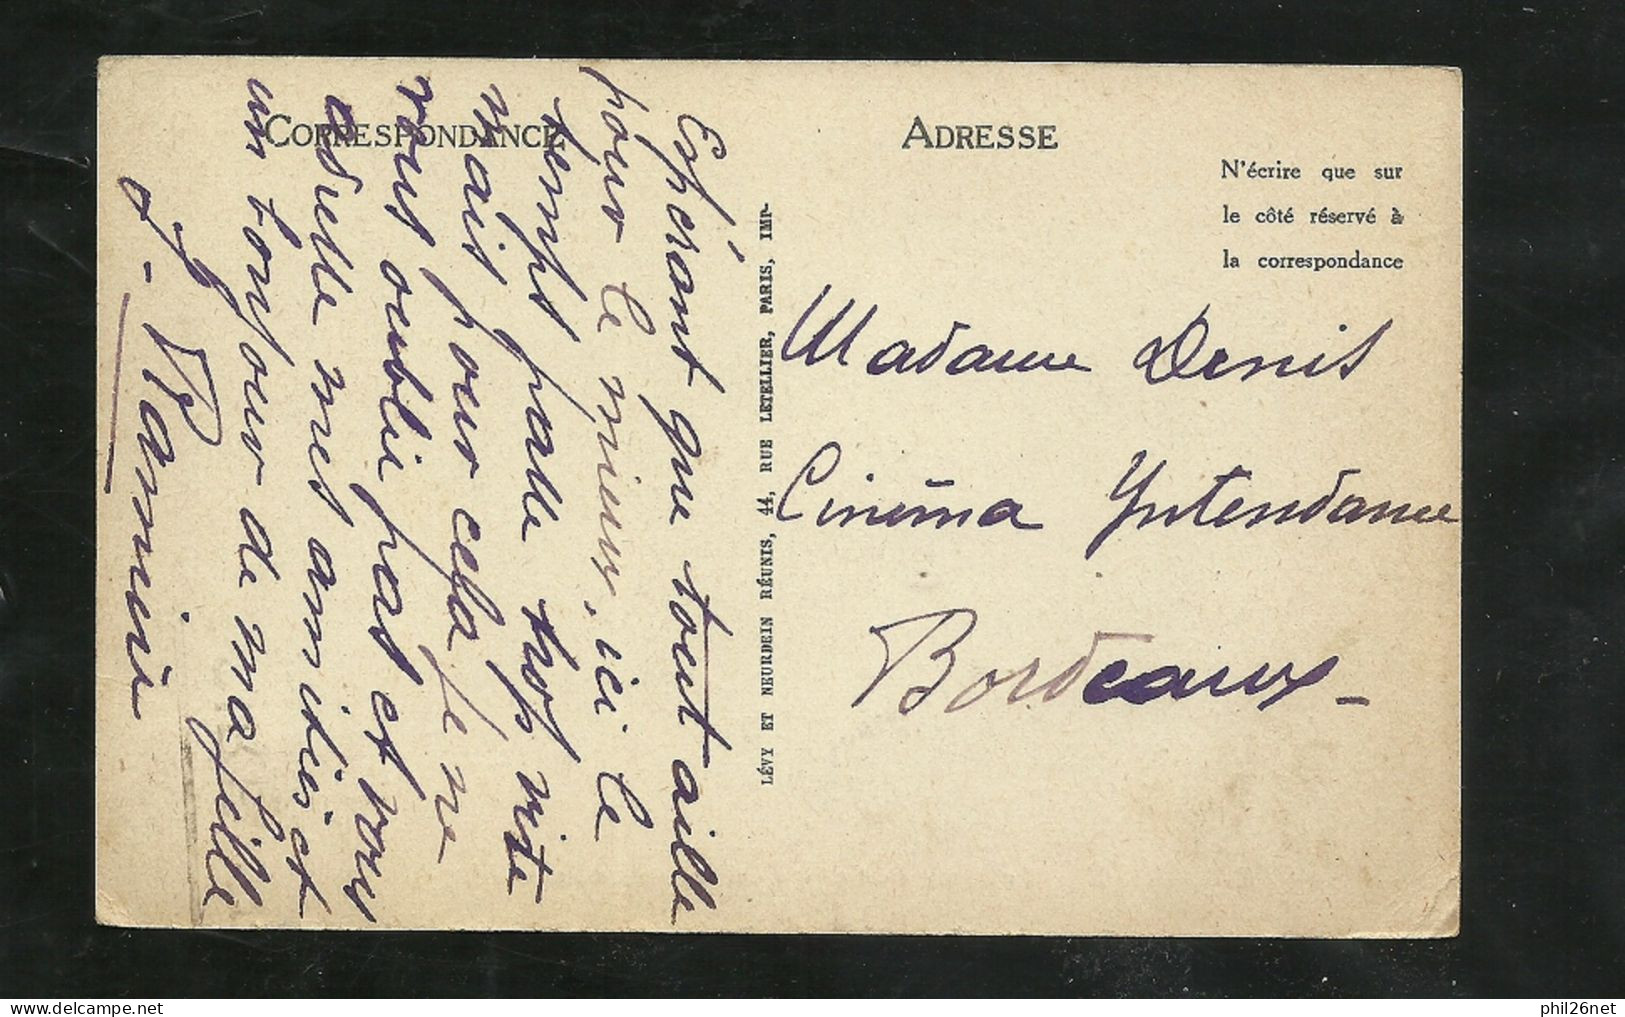 CORRESPONDANCE
Espérant que tout aille
pour le mieux, ici le
temps passe trop vite
mais pour cela je ne
vous oublie pas et vous
adresse mes amitiés et
un bonjour de ma fille
LÉVY ET NEURDEIN RÉUNIS, 44, RUE LETELLIER, PARIS, IMP-
ADRESSE
N'écrire que sur
le côté réservé à
la correspondance
Madame Denis
Cinéma Yntendance
Bordeaux-
phil26net